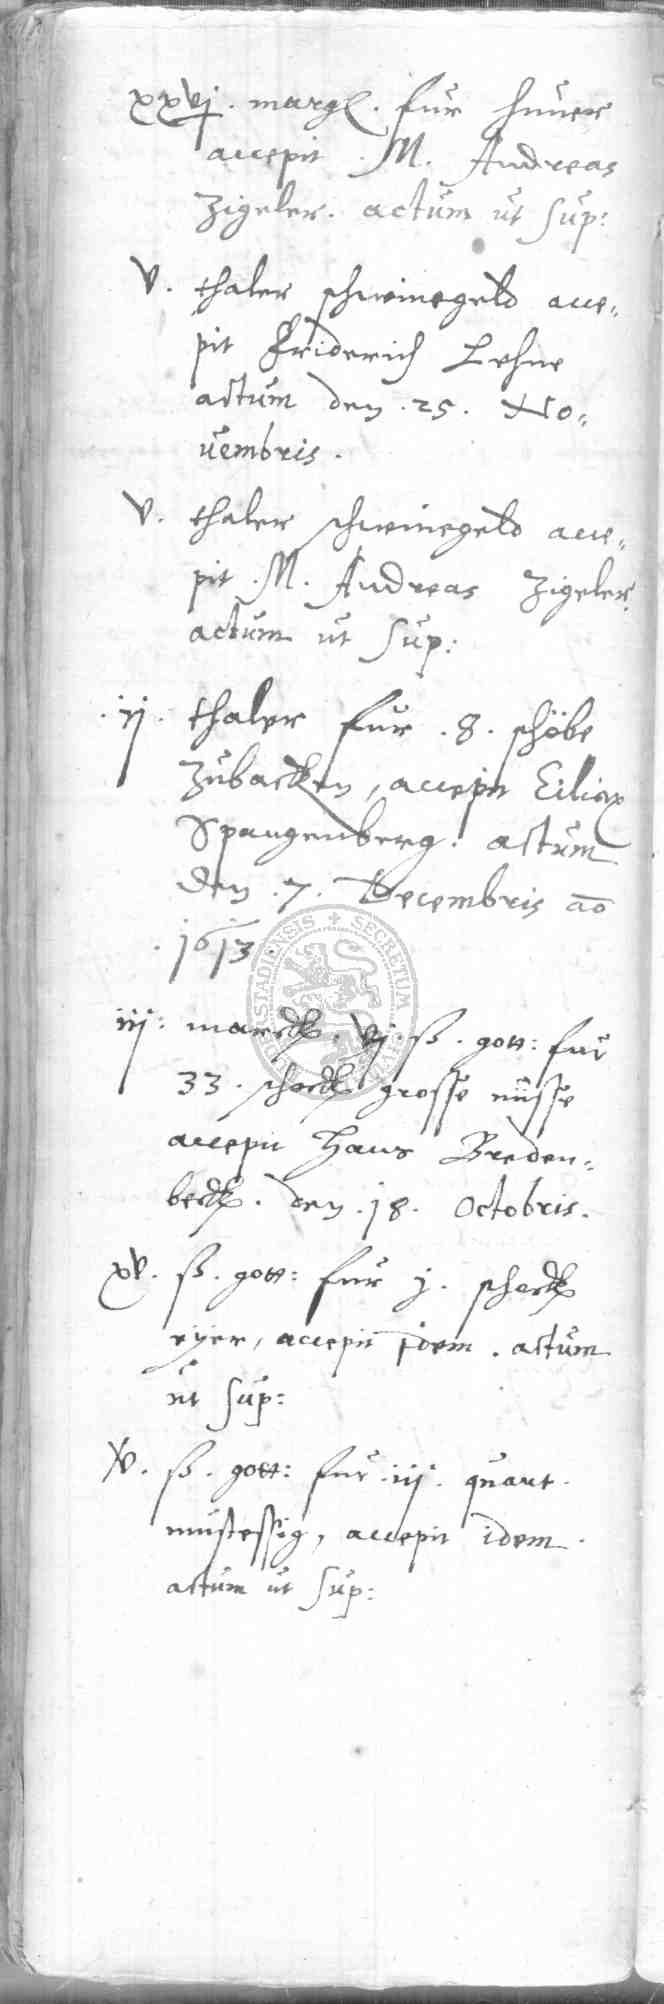 xxvj. margl. fur huner
accepit M. Andreas
Zigeler. actum ut sup:
v. thaler schweinegeld acce„
pit Friderich Lehne
actum den .25. No„
vembris.
v. thaler schweinegeld acce„
pit .M. Andreas Zigeler.
actum ut sup:
.ij. thaler fur .8. schöbe
zubacken, accepit Eiliax
Spangenberg. actum
den .7. Decembris ao
.1613.
iij: marck. vj. ß. gott: fur
33. schock grosse nüsse
accepit Hans Breden„
beck. den .18. Octobris.
xv. ß. gott: fur j. schock
eyer, accepit idem. actum
ut sup:
xv. ß. gott: fur .iij. quart
mustessig, accepit idem.
actum ut sup:
STADIENSIS SECRETUM